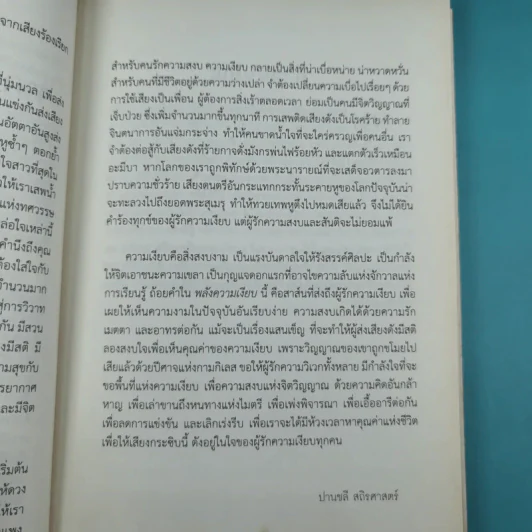 จากเสียงร้องเรียก
ที่นุ่มนวล เพื่อส่ง
นแข่งกันส่งเสียง
นอัตตาอันสูงส่ง
หูซ้ำๆ ตอกย้ำ
ใจสาวที่สุดใน
ให้เราเสพน้ำ
แห่งทศวรรษ
ล่อใจเหล่านี้
คำนึงถึงคุณ
ต้องใส่ใจกับ
จำนวนมาก
สู่การวิวาท
กัน มีสวน
งมีสติ มี
ามสุขกับ
รยากาศ
และมีจิต
เริ่มต้น
ให้ดวง
ทำให้เรา
สำหรับคนรักความสงบ ความเงียบ กลายเป็นสิ่งที่น่าเบื่อหน่าย น่าหวาดหวั่น
สำหรับคนที่มีชีวิตอยู่ด้วยความว่างเปล่า จำต้องเปลี่ยนความเบื่อไปเรื่อยๆ ด้วย
การใช้เสียงเป็นเพื่อน ผู้ต้องการสิ่งเร้าตลอดเวลา ย่อมเป็นคนมีจิตวิญญาณที่
เจ็บป่วย ซึ่งเพิ่มจำนวนมากขึ้นทุกนาที การเสพติดเสียงดังเป็นโรคร้าย ทำลาย
จินตนาการอันแจ่มกระจ่าง ทำให้คนขาดน้ำใจที่จะใคร่ครวญเพื่อคนอื่น เรา
จึงต้องต่อสู้กับเสียงดังที่ร้ายกาจดั่งมังกรพ่นไฟร้อยหัว และแตกตัวเร็วเหมือน
อะมีบา หากโลกของเราถูกพิทักษ์ด้วยพระนารายณ์ที่จะเสด็จอวตารลงมา
ปราบความชั่วร้าย เสียงดนตรีอันกระแทกกระทั้นระคายหูของโลกปัจจุบันน่า
จะทะลวงไปถึงยอดพระสุเมรุ ทำให้ทวยเทพหูตึงไปหมดเสียแล้ว จึงไม่ได้ยิน
คำร้องทุกข์ของผู้รักความเงียบ แต่ผู้รักความสงบและสันติจะไม่ยอมแพ้
ความเงียบคือสิ่งสงบงาม เป็นแรงบันดาลใจให้รังสรรค์ศิลปะ เป็นกำลัง
ให้จิตเอาชนะความเขลา เป็นกุญแจดอกแรกที่อาจไขความลับแห่งจักวาลแห่ง
การเรียนรู้ ถ้อยคำใน พลังความเงียบ นี้ คือสาส์นที่ส่งถึงผู้รักความเงียบ เพื่อ
เผยให้เห็นความงามในปัจจุบันอันเรียบง่าย ความสงบเกิดได้ด้วยความรัก
เมตตา และอาทรต่อกัน แม้จะเป็นเรื่องแสนเข็ญ ที่จะทำให้ผู้ส่งเสียงดังมีสติ
ลองสงบใจเพื่อเห็นคุณค่าของความเงียบ เพราะวิญญาณของเขาถูกขโมยไป
เสียแล้วด้วยปีศาจแห่งกามกิเลส ขอให้ผู้รักความวิเวกทั้งหลาย มีกำลังใจที่จะ
ขอพื้นที่แห่งความเงียบ เพื่อความสงบแห่งจิตวิญญาณ ด้วยความคิดอันกล้า
หาญ เพื่อเล่าขานถึงหนทางแห่งไมตรี เพื่อเพ่งพิจารณา เพื่อเอื้ออารีต่อกัน
เพื่อลดการแข่งขัน และเลิกเร่งรีบ เพื่อเราจะได้มีห้วงเวลาหาคุณค่าแห่งชีวิต
เพื่อให้เสียงกระซิบนี้ ดังอยู่ในใจของผู้รักความเงียบทุกคน
ปานชลี สถิรศาสตร์